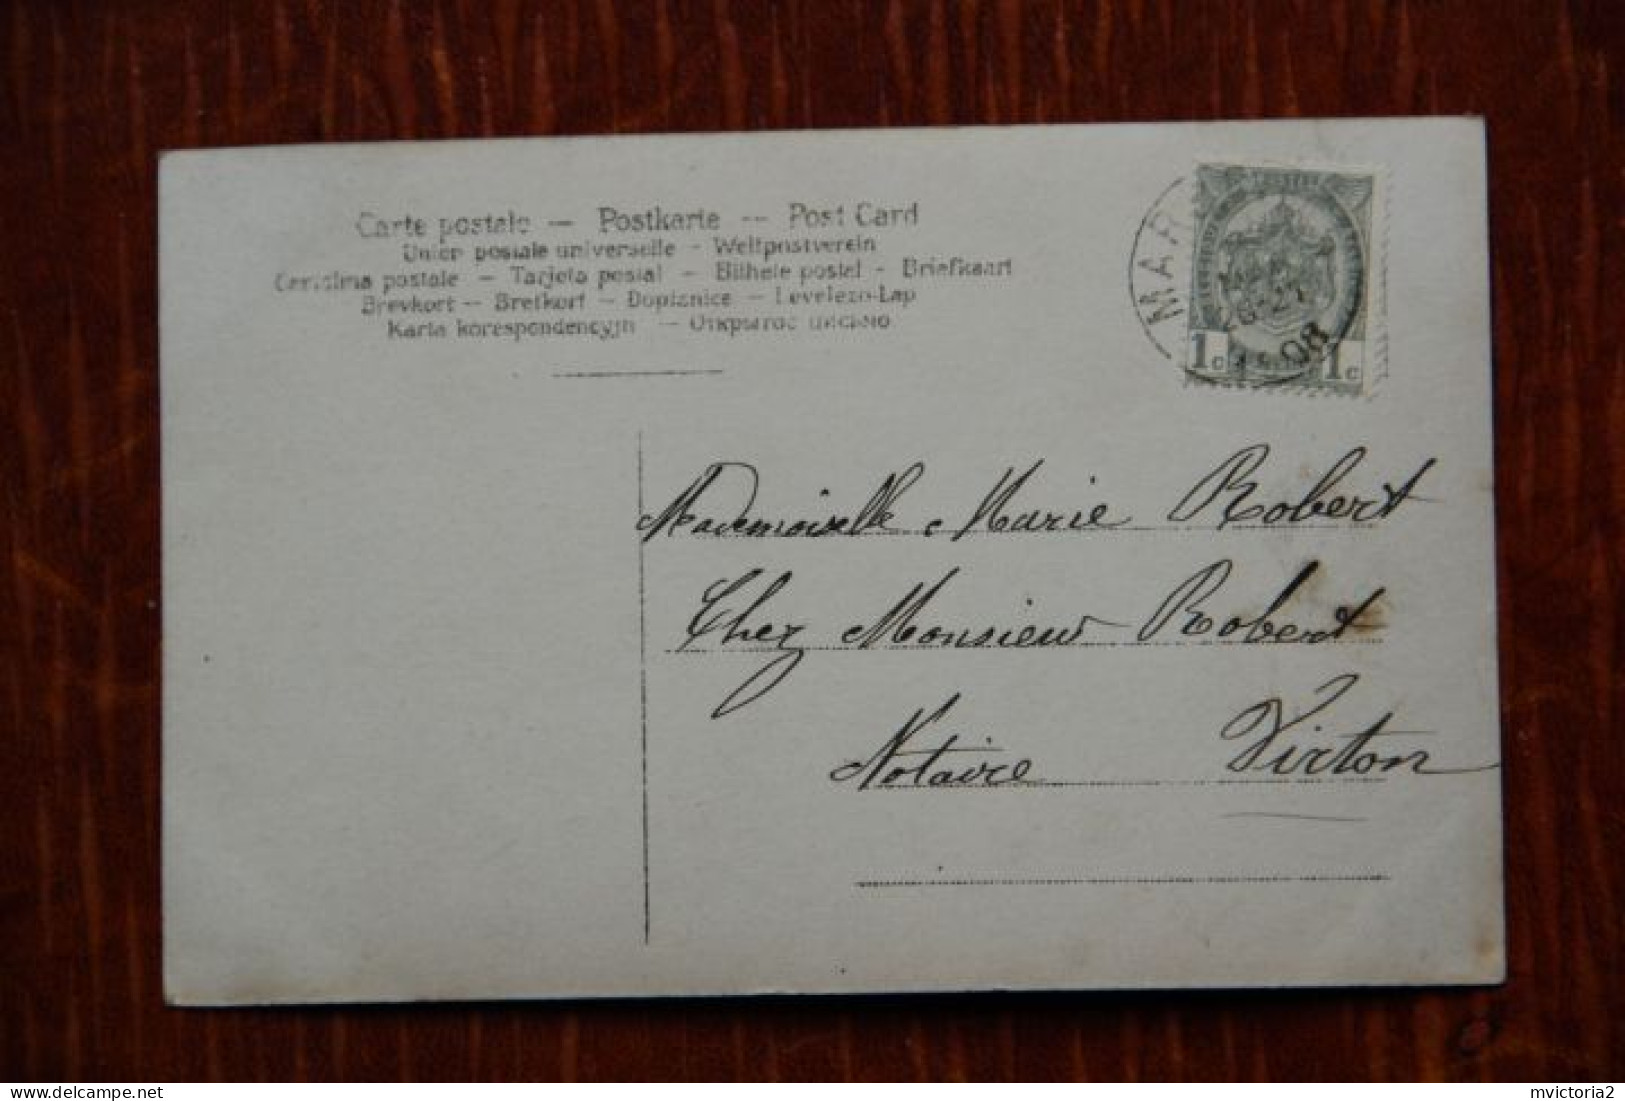 Carte postale — Postkarte -- Post Card
Union postale universelle - Weltpostverein
Cartolina postale - Tarjeta postal - Bilhete postal - Briefkaart
Brevkort -- Bretkort - Dopiznice - Levelezo-Lap
Karta korespondencyjn — Открытое письмо
MAR
26-27
1908
1c 1c
Mademoiselle Marie Robert
Chez Monsieur Robert
Notaire Virton
mvictoria2